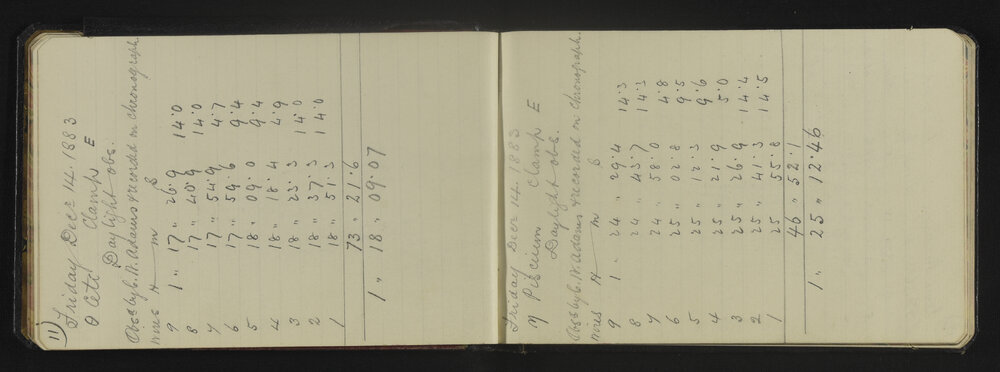 11)
Friday Decr 14. 1883
θ Ceti Clamp E
Daylight obs.
Obsd by C. W. Adams & recorded on chronograph.
Wires H m s
9 1 " 17 " 26.9 14.0
8 17 " 40.9 14.0
7 17 " 54.9 4.7
6 17 " 59.6 9.4
5 18 " 09.0 9.4
4 18 " 18.4 4.9
3 18 " 23.3 14.0
2 18 " 37.3 14.0
1 18 " 51.3
73 " 21.6
1 " 18 " 09.07
Friday Decr 14. 1883
η Piscium Clamp E
Daylight obs.
Obsd by C. W. Adams & recorded on chronograph.
Wires H m s
9 1 " 24 " 29.4 14.3
8 24 " 43.7 14.3
7 24 " 58.0 4.8
6 25 " 02.8 9.5
5 25 " 12.3 9.6
4 25 " 21.9 5.0
3 25 " 26.9 14.4
2 25 " 41.3 14.5
1 25 55.8
46 " 52.1
1 " 25 " 12.46